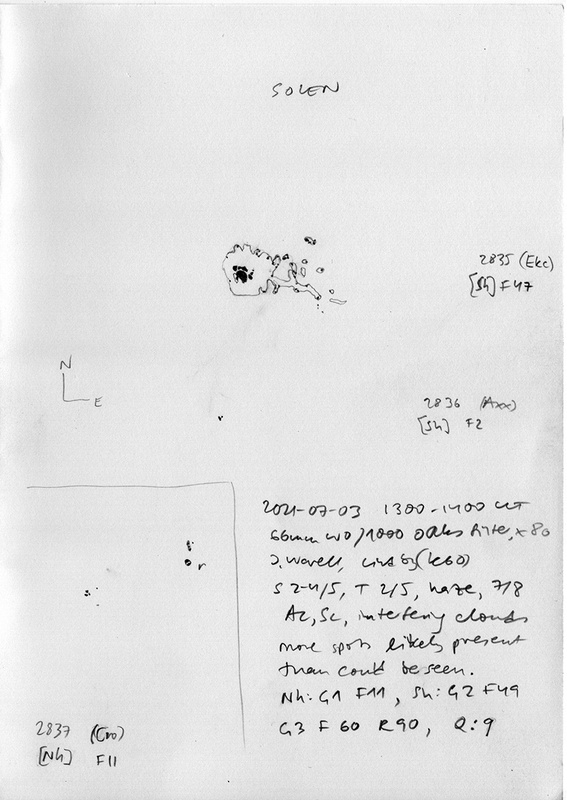 SOLEN
2835 (Ekc)
[Sh] F47
N
E
2836 (Axx)
[Sh] F2
2021-07-03 1300-1400 UT
66mm WO/1000 Oaks filter, x80
Linkby (k60)
S 2-4/5, T 2/5, haze, 7/8
Ac, Sc, interfering clouds
more spots likely present
than could be seen.
Nh: G1 F11, Sh: G2 F49
G3 F 60 R90, Q: 9
2837 (Cro)
[Nh] F11